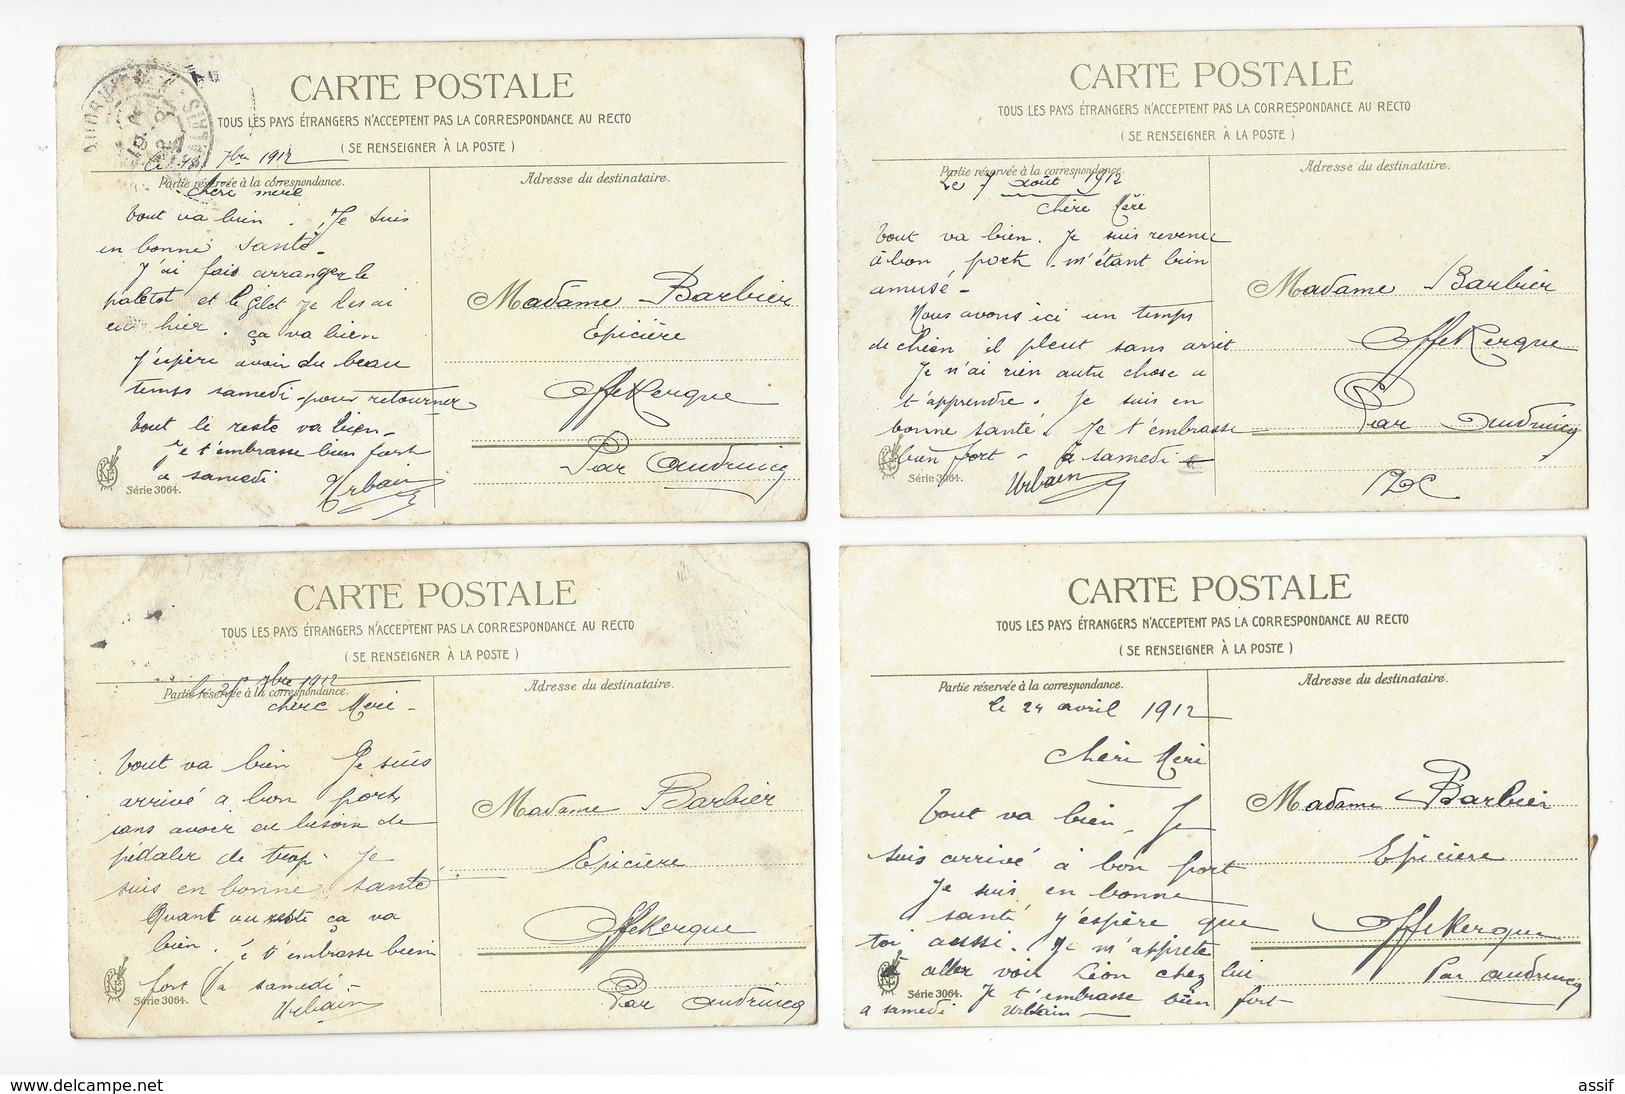 CARTE POSTALE
TOUS LES PAYS ÉTRANGERS N'ACCEPTENT PAS LA CORRESPONDANCE AU RECTO
( SE RENSEIGNER À LA POSTE )
7bre 1912
Partie réservée à la correspondance.
Adresse du destinataire.
Chèri mère
Tout va bien. Je suis
en bonne santé.
J'ai fais arranger le
paletot et le gilet je les ai
eu hier. ça va bien
J'espère avoir du beau
temps samedi pour retourner
Tout le reste va bien
je t'embrasse bien fort
a samedi Urbain
Madame Barbier
Epicière
Offekerque
Par Audruicq
Série 3064.
CARTE POSTALE
TOUS LES PAYS ÉTRANGERS N'ACCEPTENT PAS LA CORRESPONDANCE AU RECTO
( SE RENSEIGNER À LA POSTE )
Partie réservée à la correspondance.
Adresse du destinataire.
Le 7 août 1912
Chère Mère
Tout va bien. Je suis revenu
à bon port m'étant bien
amusé -
Nous avons ici un temps
de chien il pleut sans arrêt
Je n'ai rien autre chose a
t'apprendre. Je suis en
bonne santé. Je t'embrasse
bien fort - à samedi
Urbain
Madame Barbier
Offekerque
Par Audruicq
PDC
Série 3064.
CARTE POSTALE
TOUS LES PAYS ÉTRANGERS N'ACCEPTENT PAS LA CORRESPONDANCE AU RECTO
( SE RENSEIGNER À LA POSTE )
le 25 7bre 1912
Partie réservée à la correspondance.
Adresse du destinataire.
Chère Mère -
Tout va bien Je suis
arrivé a bon port
sans avoir eu besoin de
pédaler de trop. Je
suis en bonne santé
Quant au reste ça va
bien. Je t'embrasse bien
fort a samedi -
Urbain
Madame Barbier
Epicière
Offekerque
Par Audruicq
Série 3064.
CARTE POSTALE
TOUS LES PAYS ÉTRANGERS N'ACCEPTENT PAS LA CORRESPONDANCE AU RECTO
( SE RENSEIGNER À LA POSTE )
Partie réservée à la correspondance.
Adresse du destinataire.
le 24 avril 1912
Chèri Mèri
Tout va bien. Je
suis arrivé à bon port
Je suis en bonne
santé j'espère que
toi aussi. Je m'apprete
à aller voir Léon chez lui
Je t'embrasse bien fort
a samedi Urbain
Madame Barbier
Epicière
Offekerque
Par Audruicq
Série 3064.
assif